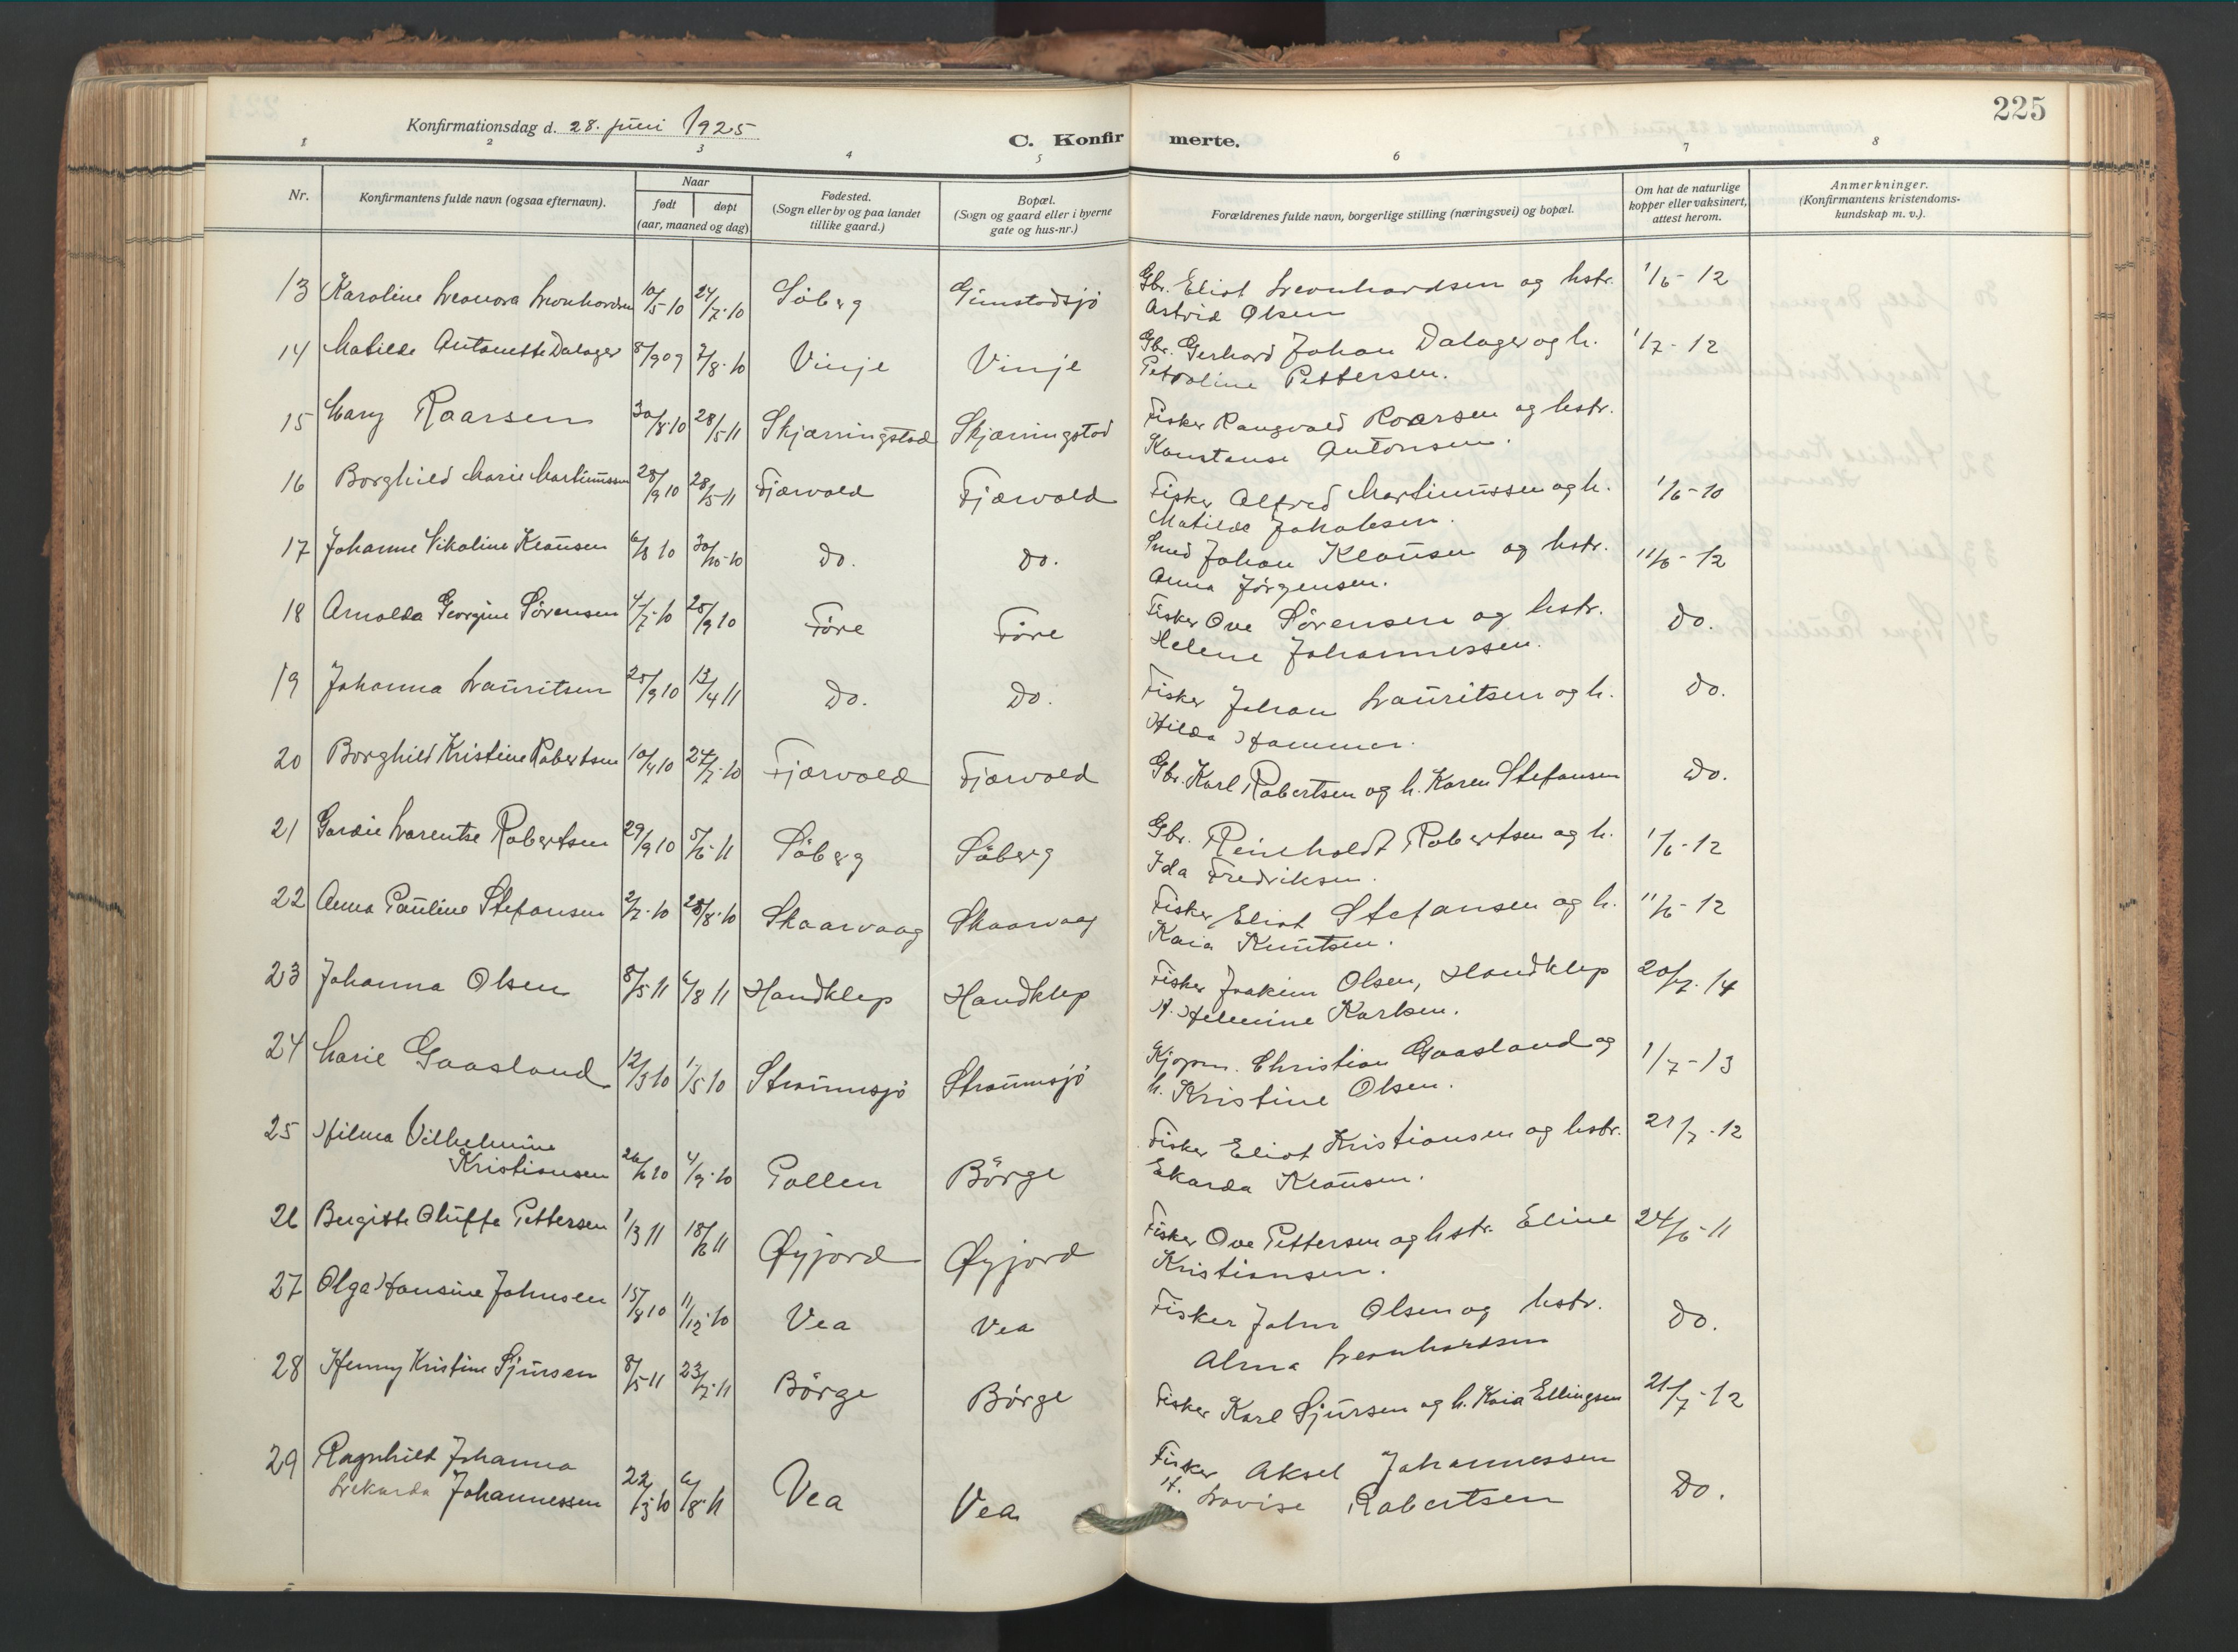 225
Konfirmationsdag d. 28. juni 1925
C. Konfirmerte.
1 2 3 4 5 6 7 8
Nr.
Konfirmantens fulde navn (ogsaa efternavn).
Naar
født døpt
(aar, maaned og dag)
Fødested.
(Sogn eller by og paa landet
tillike gaard.)
Bopæl.
(Sogn og gaard eller i byerne
gate og hus-nr.)
Forældrenes fulde navn, borgerlige stilling (næringsvei) og bopæl.
Om hat de naturlige
kopper eller vaksinert,
attest herom.
Anmerkninger.
(Konfirmantens kristendoms-
kundskap m. v.).
13 Karoline Leonora Leonhardsen 10/5 10 24/7-10 Söberg Gimstadsjö Gbr. Eliot Leonhardsen og hstr. 1/6-12
Astrid Olsen
14 Matilde Antonette Dalager 8/9 09 7/8-10 Vinje Vinje Gbr. Gerhard Johan Dalager og h. 1/7-12
Petroline Pettersen.
15 Mary Roarsen 30/8 10 28/5 11 Skjærringstad Skjærringstad Fisker Rangvald Roarsen og hstr.
Konstanse Antonsen.
16 Borghild Marie Martinussen 28/9 10 28/5-11 Fjærvold Fjærvold Fisker Alfred Martinussen og h. 1/6-10
Matilde Jakobsen.
17 Johanne Nikoline Klaüsen 6/8 10 30/10-10 do. do. Smed Johan Klaüsen og hstr. 11/6-12
Anna Jörgensen.
18 Arnolda Georgine Sörensen 4/7-10 25/9 10 Före Före Fisker Ove Sörensen og hstr. do.
Helene Johannessen.
19 Johanna Laüritsen 25/9 10 13/4 11 do. do. Fisker Johan Laüritsen og h. do.
Hilda Hammer.
20 Borghild Kristine Robertsen 10/4 10 24/7-10 Fjærvold Fjærvold Gbr. Karl Robertsen og h. Karen Stefansen do.
21 Gardie Larentse Robertsen 29/9 10 5/6-11 Söberg Söberg Gbr. Reinholdt Robertsen og h. 1/6-12
Ida Fredriksen.
22 Anna Paüline Stefansen 2/7-10 28/8-10 Skaarvaag Skaarvaag Fisker Eliot Stefansen og h. 11/6-12
Kaia Knütsen.
23 Johanna Olsen 8/5 11 6/8 11 Handklep Handklep Fisker Joakim Olsen, Handklep 20/7-14
H. Helmine Karlsen.
24 Marie Gaasland 12/3 10 1/5 10 Straümsjö Straümsjö Kjøpm. Christian Gaasland og 1/7-13
h. Kristine Olsen.
25 Hilma Vilhelmine
Kristiansen 26/6 10 4/9-10 Pollen Börge Fisker Eliot Kristiansen og hstr. 21/7-12
Ekarda Klaüsen.
26 Bergitte Olüffa Pettersen 1/3 11 18/6 11 Øyjord Øyjord Fisker Ove Pettersen og hstr. Eline 24/6-11
Kristiansen.
27 Olga Hansine Johnsen 15/8 10 11/12-10 Vea Vea Fisker John Olsen og hstr. do.
Alma Leonhardsen
28 Henny Kristine Sjürsen 8/5-11 23/7-11 Börge Börge Fisker Karl Sjürsen og h. Kaia Ellingsen 21/7-12
29 Ragnhild Johanna
Lekarda Johannessen 22/3-10 6/8-11 Vea Vea Fisker Aksel Johannessen do.
H. Lovise Robertsen